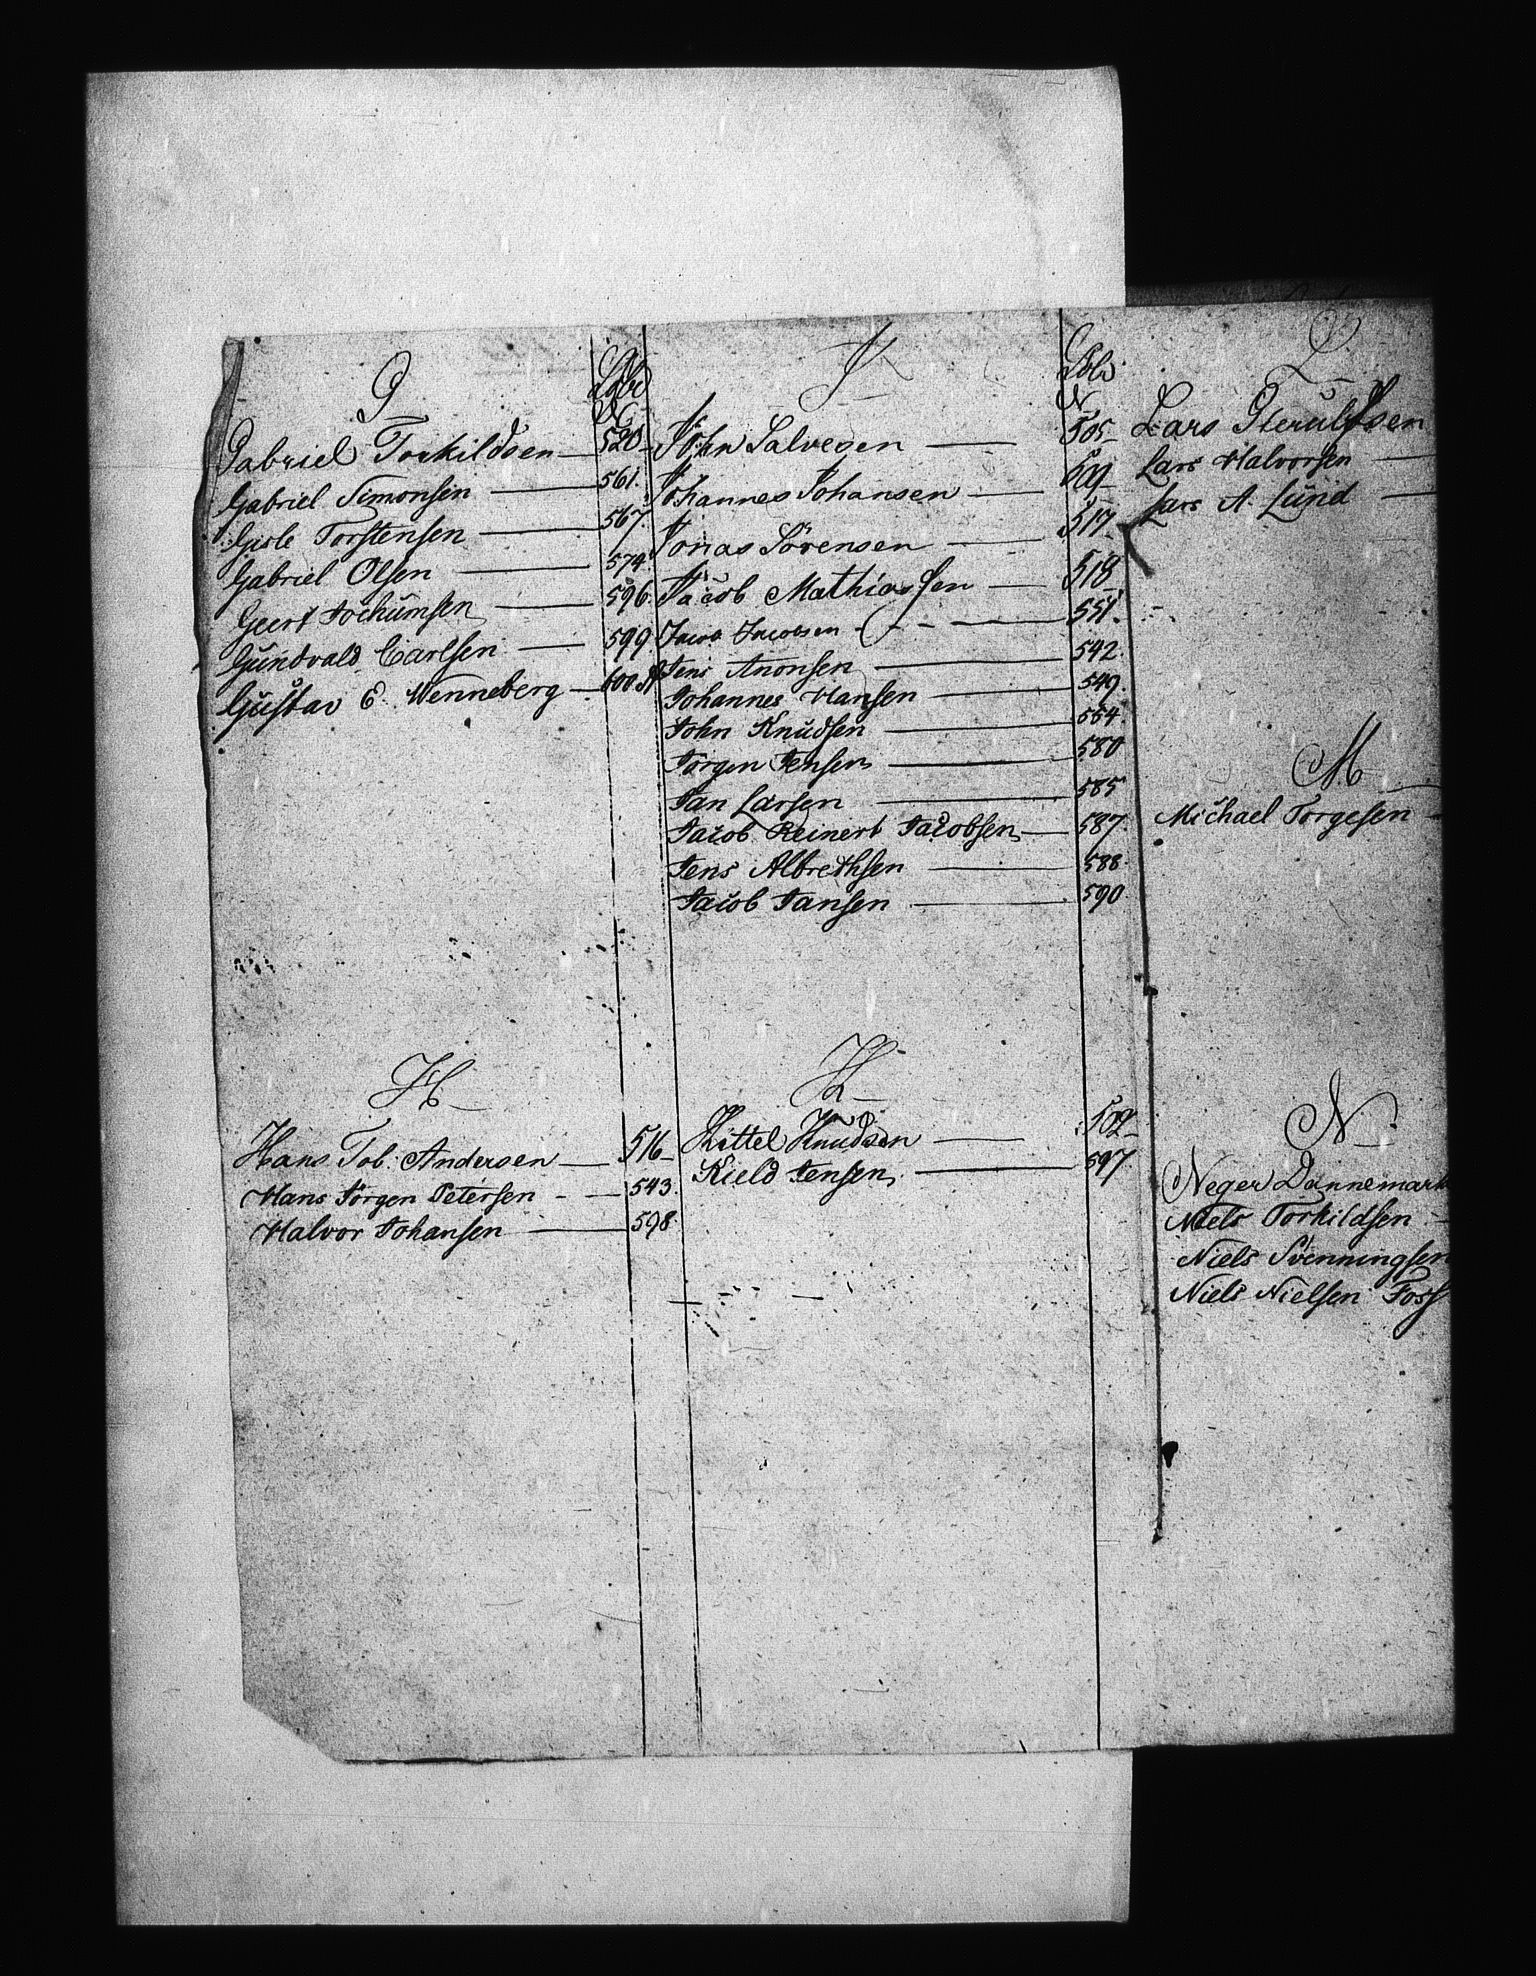 G
Löbe
No
Gabriel Torkildsen 520
Gabriel Simonsen 561.
Gisle Torstensen 567
Gabriel Olsen 574
Geert Jochumsen 596
Gundvald Carlsen 599
Gustav E. Wenneberg 600.
H
Hans Tob. Andersen 516
Hans Jörgen Petersen 543.
Halvor Johansen 598.
J
Löb
No
John Salvesen 505
Johannes Johansen 509
Jonas Sörensen 517
Jacob Mathiassen 518
Jacob Jacobsen 551.
Jens Anonsen 542
Johannes Hansen 549.
John Knudsen 554.
Jörgen Jensen 580
Jan Larsen 585
Jacob Reinert Jacobsen 587.
Jens Albrethsen 588
Jacob Jansen 590
K
Kittel Knudsen
Kield Jensen 597
L
Lars
Lars Halvorsen
Lars A. Lund
M
Michael Torgesen
N
Neger Dannemark
Niels Torkildsen
Niels Svenningsen
Niels Nielsen Foss